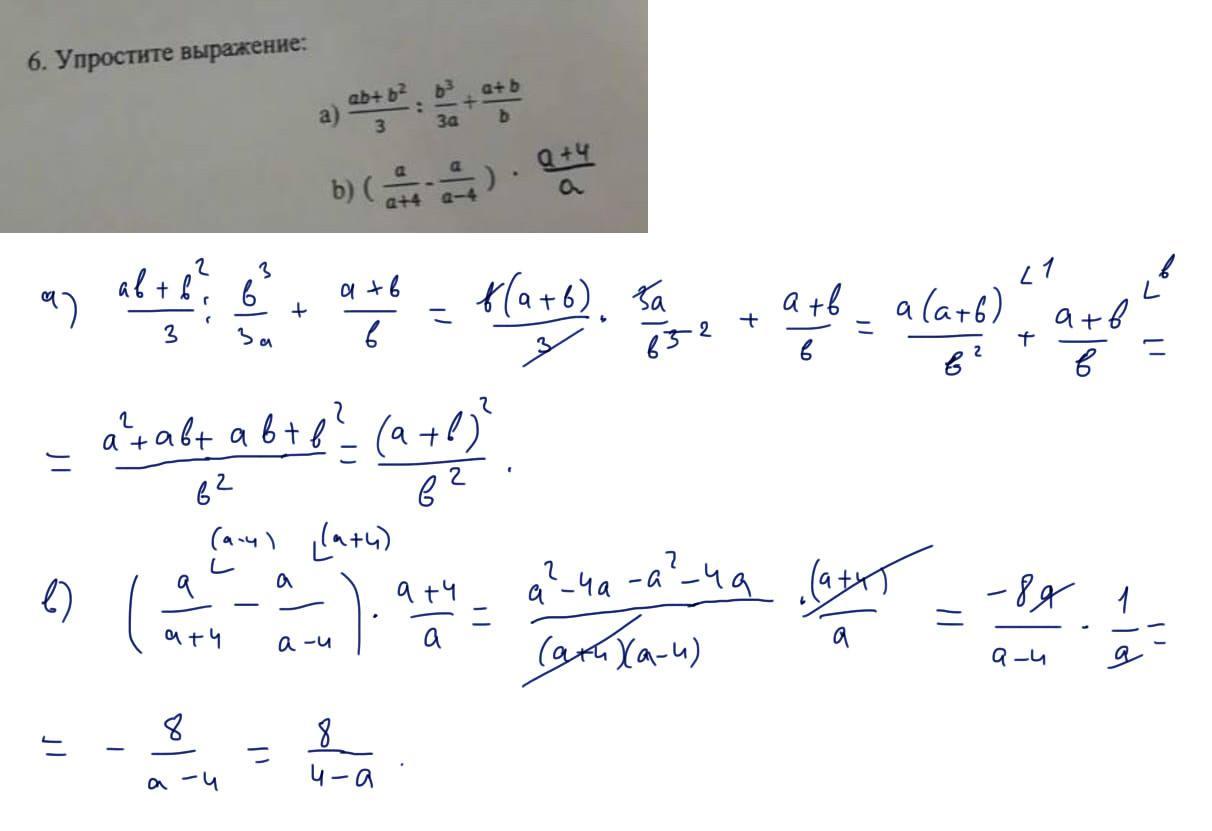 6. Упростите выражение:
a) \frac{ab+b^2}{3} : \frac{b^3}{3a} + \frac{a+b}{b}
b) ( \frac{a}{a+4} - \frac{a}{a-4} ) · \frac{a+4}{a}
а) \frac{ab+b^2}{3} : \frac{b^3}{3a} + \frac{a+b}{b} = \frac{b(a+b)}{3} · \frac{3a}{b^{3-2}} + \frac{a+b}{b} = \frac{a(a+b)^{∟1}}{b^2} + \frac{a+b^{∟b}}{b} =
= \frac{a^2+ab+ab+b^2}{b^2} = \frac{(a+b)^2}{b^2} .
(a-4) (a+4)
b) ( \frac{a}{a+4} - \frac{a}{a-4} ) · \frac{a+4}{a} = \frac{a^2-4a-a^2-4a}{(a+4)(a-4)} · \frac{(a+4)}{a} = \frac{-8a}{a-4} · \frac{1}{a} =
= - \frac{8}{a-4} = \frac{8}{4-a} .